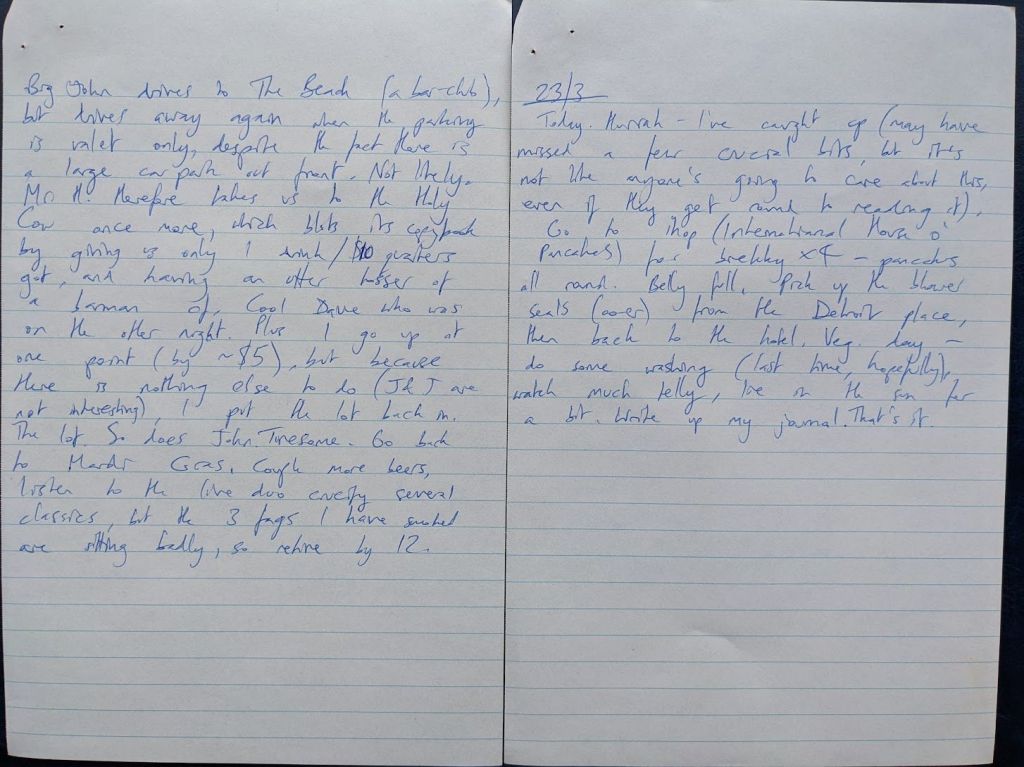 Big John drives to The Beach (a bar-club),
but drives away again when the parking
is valet only, despite the fact there is
a large car park out front. Not likely.
Mr. H. therefore takes us to the Holy
Cow once more, which blots its copybook
by giving us only 1 drink/$10 quarters
got, and having an utter tosser of
a barman cf. Cool Dave who was
on the other night. Plus I go up at
one point (by ~$5), but because
there is nothing else to do (J&J are
not interesting), I put the lot back in.
The lot. So does John. Tiresome. Go back
to Mardi Gras. Cough more beers,
listen to the live duo crucify several
classics, but the 3 fags I have smoked
are sitting badly, so retire by 12.
23/3
Today. Hurrah - I've caught up (may have
missed a few crucial bits, but it's
not like anyone's going to care about this,
even if they get round to reading it).
Go to ihop (International House o'
Pancakes) for brekky x4 - pancakes
all round. Belly full. Pick up the blower
seals (oo-er) from the Detroit place,
then back to the hotel. Veg. day -
do some washing (last time, hopefully),
watch much telly, lie in the sun for
a bit. Write up my journal. That's it.